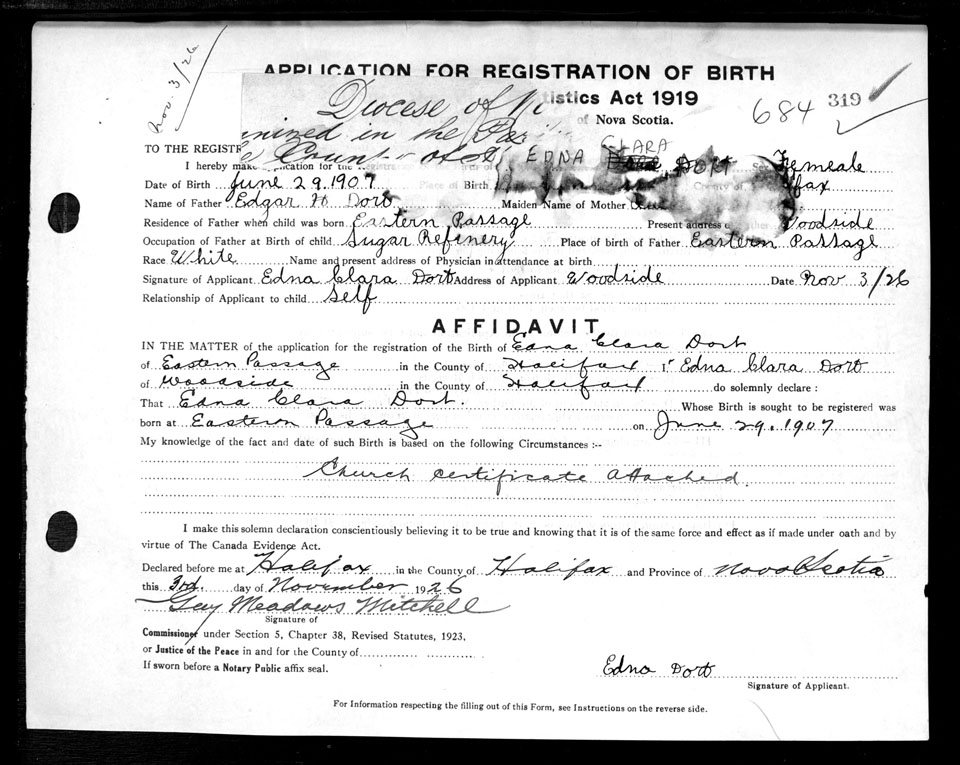 Nov. 3/26
APPLICATION FOR REGISTRATION OF BIRTH
Diocese of
tistics Act 1919
684 319
of Nova Scotia.
in the
TO THE REGISTR
EDNA CLARA DORT
I hereby make application for the Female
Date of Birth June 29.1907 Place of Birth County of fax
Name of Father Edgar H. Dort Maiden Name of Mother
Residence of Father when child was born Eastern Passage Present address Woodside
Occupation of Father at Birth of child Sugar Refinery Place of birth of Father Eastern Passage
Race White Name and present address of Physician in attendance at birth
Signature of Applicant Edna Clara Dort Address of Applicant Woodside Date Nov 3/26
Relationship of Applicant to child Self
AFFIDAVIT
IN THE MATTER of the application for the registration of the Birth of Edna Clara Dort
of Eastern Passage in the County of Halifax I, Edna Clara Dort
of Woodside in the County of Halifax do solemnly declare :
That Edna Clara Dort. Whose Birth is sought to be registered was
born at Eastern Passage on June 29, 1907
My knowledge of the fact and date of such Birth is based on the following Circumstances :--
Church certificate attached.
I make this solemn declaration conscientiously believing it to be true and knowing that it is of the same force and effect as if made under oath and by
virtue of The Canada Evidence Act.
Declared before me at Halifax in the County of Halifax and Province of Nova Scotia
this 3rd. day of November 1926
Guy Meadows Mitchell
Signature of
Commissioner under Section 5, Chapter 38, Revised Statutes, 1923,
or Justice of the Peace in and for the County of
If sworn before a Notary Public affix seal.
Edna Dort
Signature of Applicant.
For Information respecting the filling out of this Form, see Instructions on the reverse side.